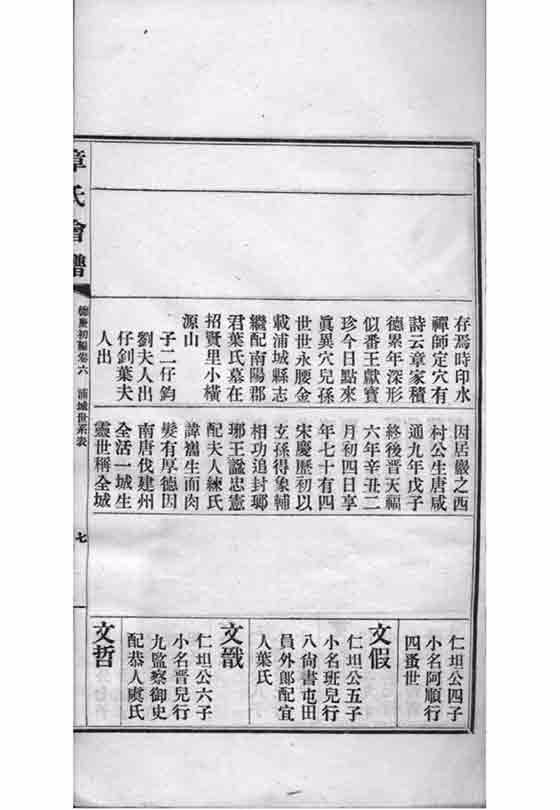 存焉時印水
禪師定穴有
詩云章家積
德累年深形
似番王獻寶
珍今日點來
眞異穴兒孫
世世永腰金
載浦城縣志
繼配南陽郡
君葉氏墓在
招賢里小橫
源山
子二仔鈞
劉夫人出
仔釗葉夫
人出
因居巖之西
村公生唐咸
通九年戊子
終後晋天福
六年辛丑二
月初四日享
年七十有四
宋慶歷初以
玄孫得象輔
相功追封瑯
琊王諡忠憲
配夫人練氏
諱生而肉
髮有厚德因
南唐伐建州
全活一城生
靈世稱全城
仁坦公四子
小名阿順行
四蚤世
文假
仁坦公五子
小名班兒行
八尚書屯田
員外郎配宜
人葉氏
文戩
仁坦公六子
小名晋兒行
九監察御史
配恭人虞氏
文哲
章氏會譜
德慶初編卷六
浦城世系表
七